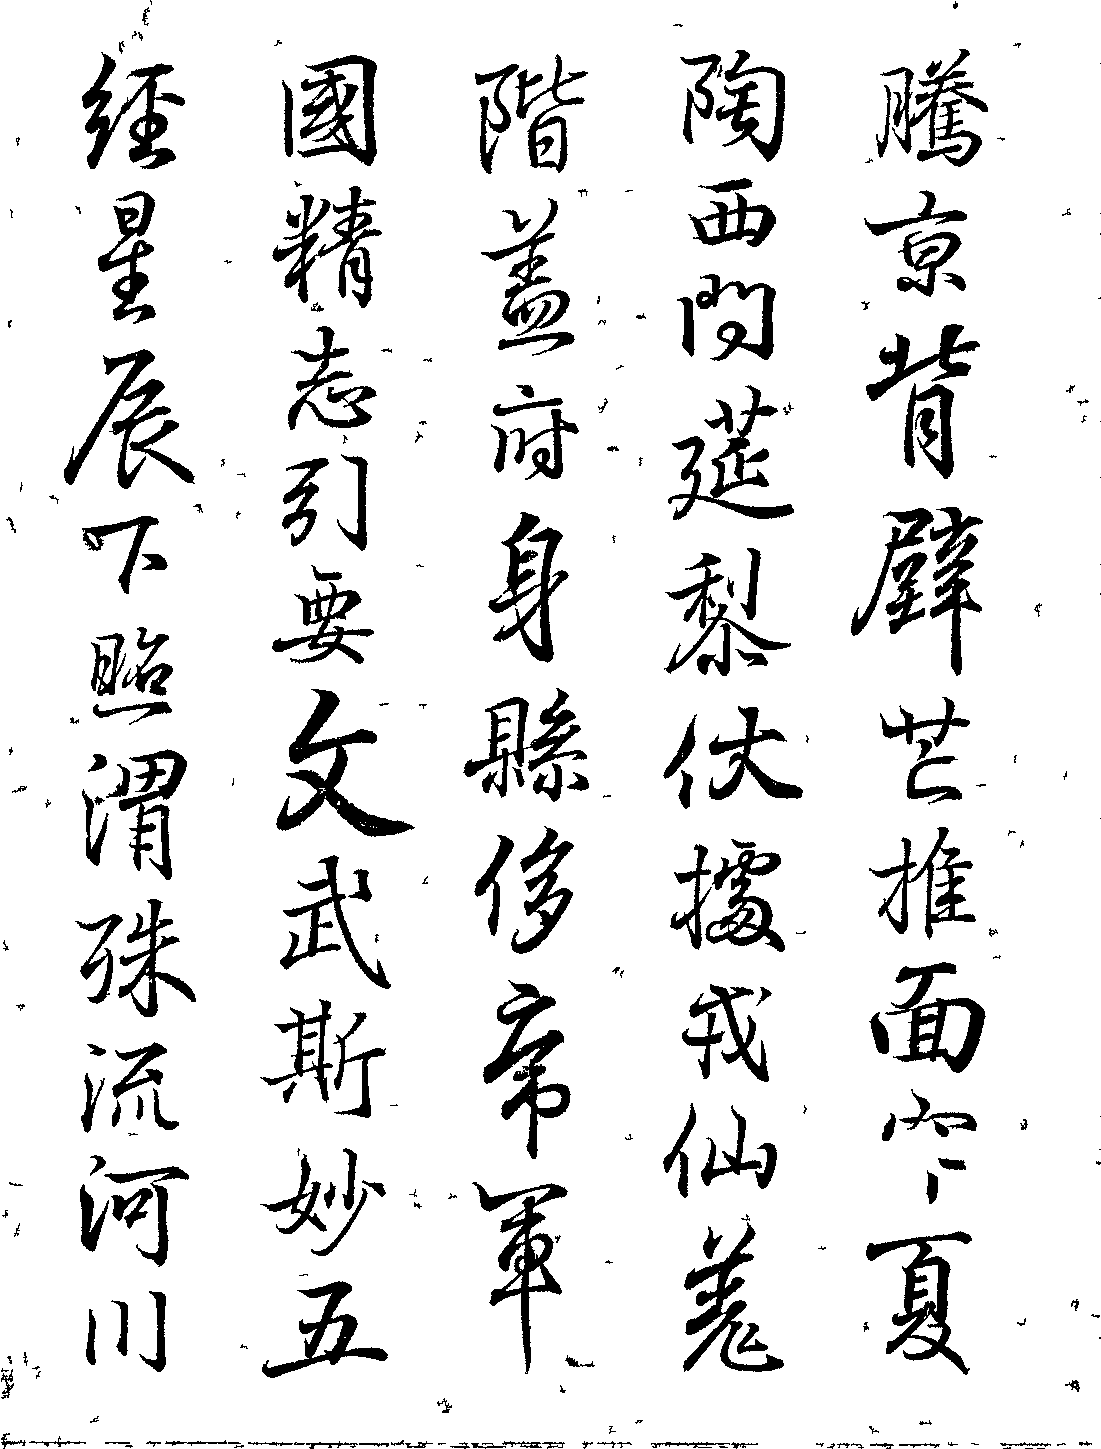 騰京背芒推面夏
陶西問莚黎伏據戎仙羌
階蓋府身縣侈帝軍
國精志引要文武斯妙五
經星辰下照渭殊流河川